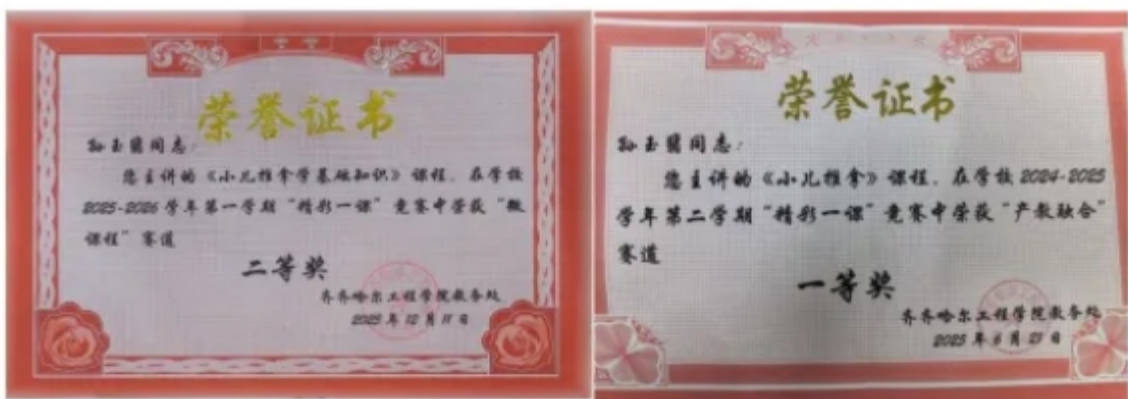 荣誉证书
孙玉翳同志:
您主讲的《小儿推拿学基础知识》课程,在学校
2025-2026 学年第一学期“精彩一课”竞赛中荣获“微
课程”赛道
二等奖
齐齐哈尔工程学院教务处
2025 年 12 月 17 日
荣誉证书
孙玉翳同志:
您主讲的《小儿推拿》课程,在学校 2024-2025
学年第二学期“精彩一课”竞赛中荣获“产教融合”
赛道
一等奖
齐齐哈尔工程学院教务处
2025 年 6 月 23 日